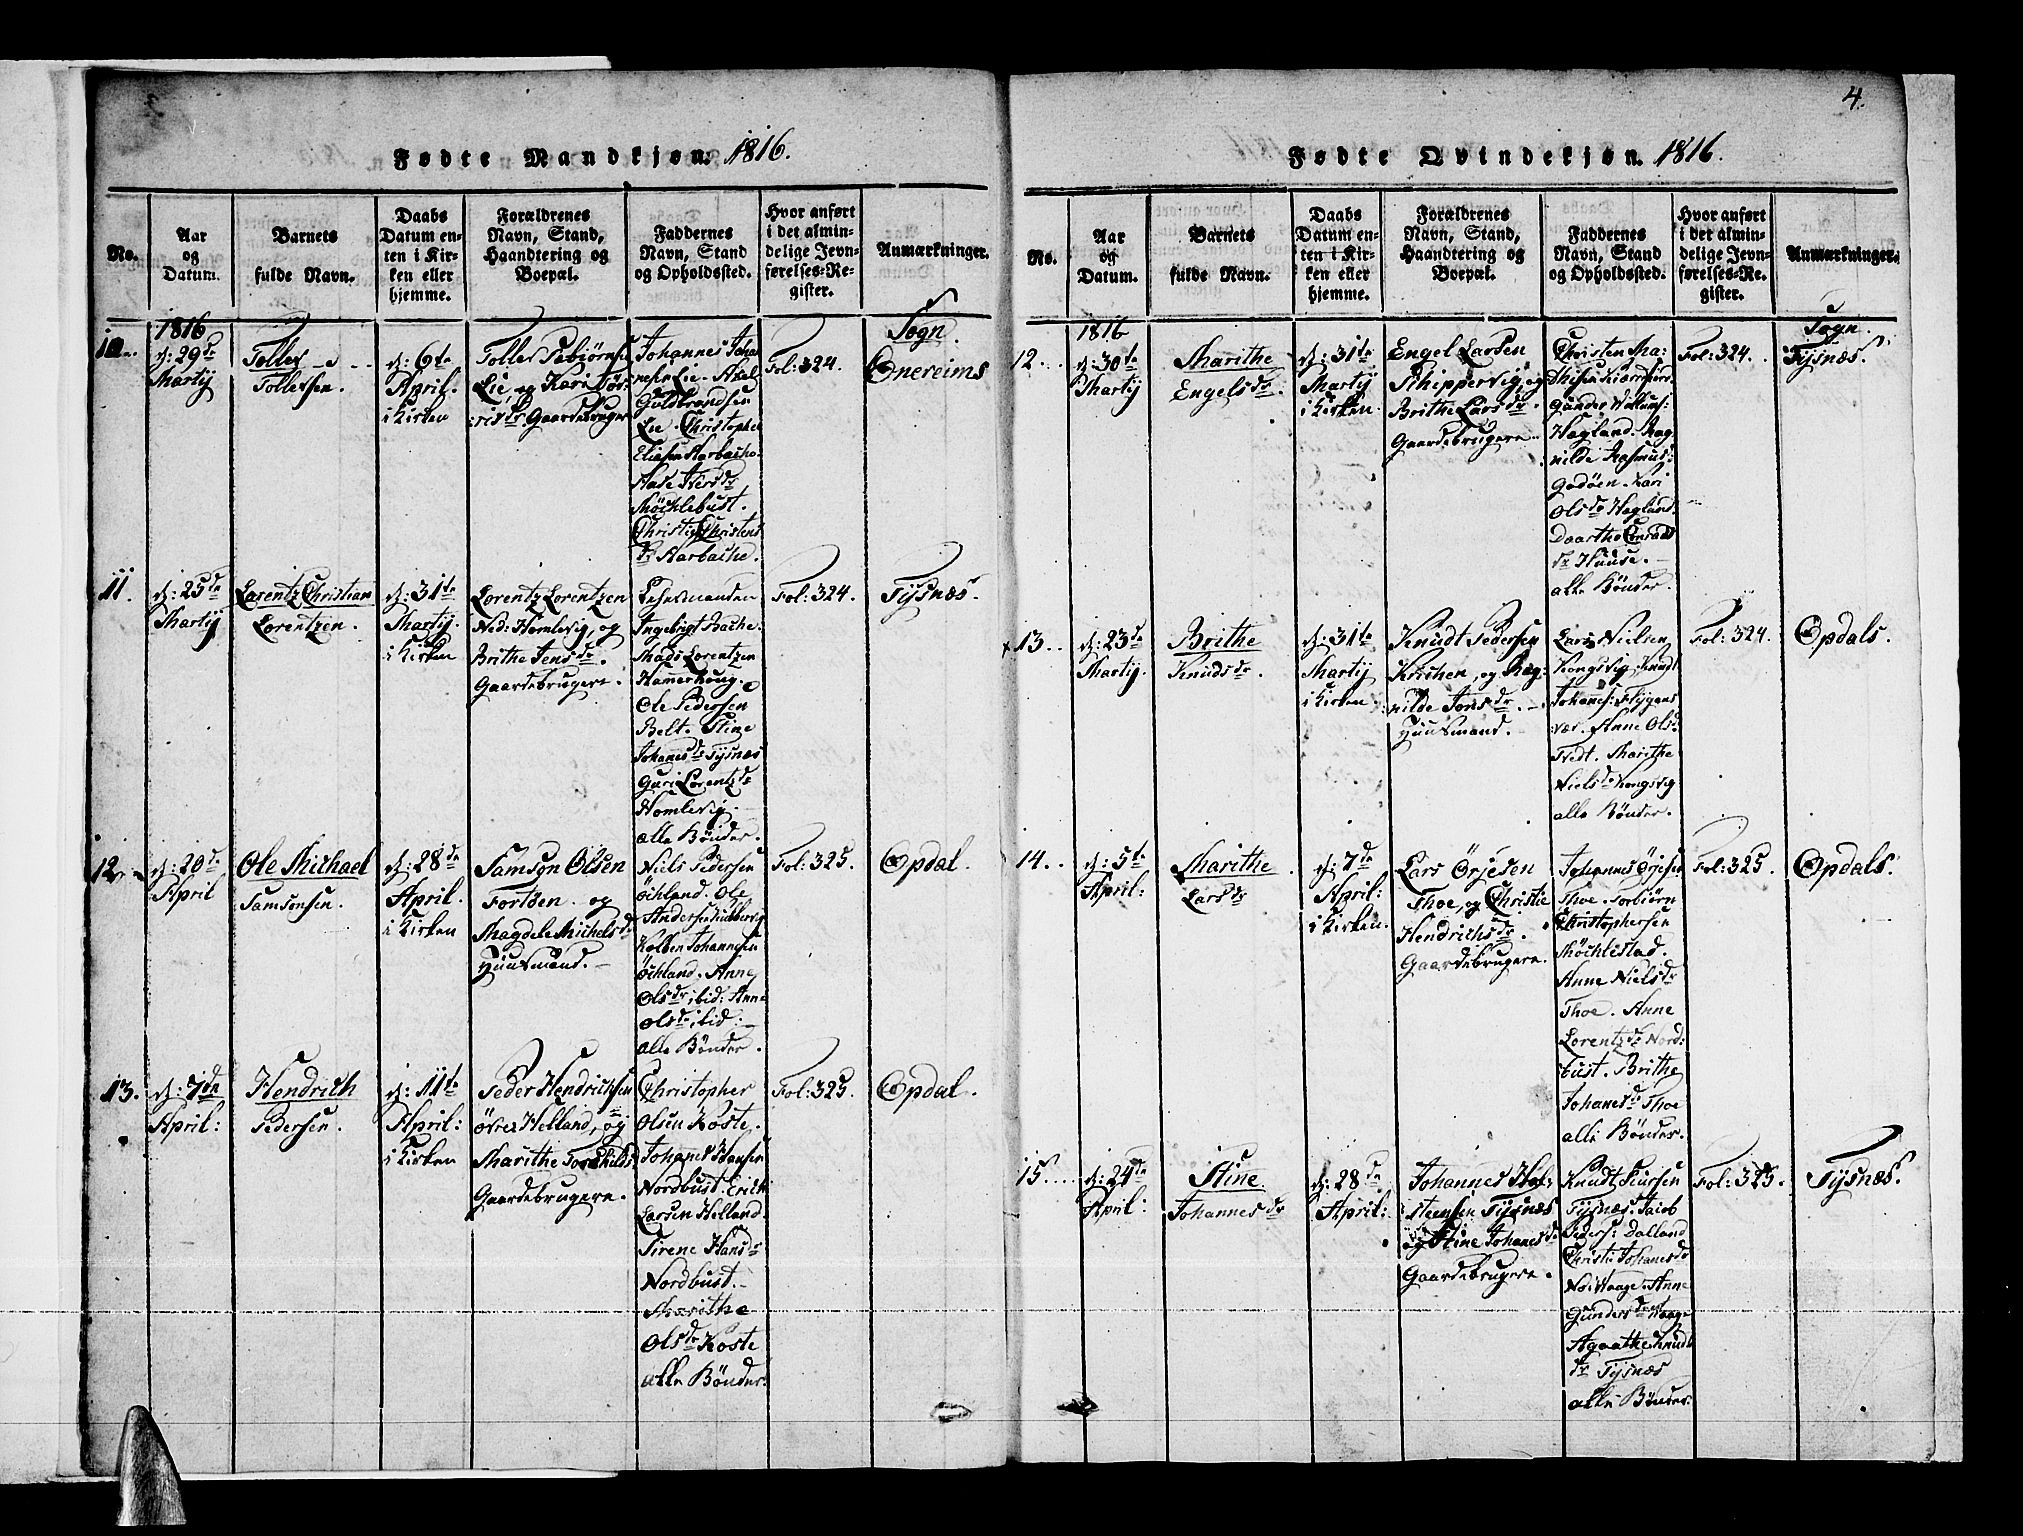 Fødte Mandkjøn. 1816.
No.
Aar
og
Datum.
Barnets
fulde Navn.
Daabs
Datum en-
ten i Kir-
ken eller
hjemme.
Forældrenes
Navn, Stand,
Haandtering og
Boepæl.
Faddernes
Navn, Stand
og Opholdssted.
Hvor anført
i det almin-
delige Jevn-
førelses-Re-
gister.
Anmærkninger.
10.
1816
d: 29de
Martij
Tollev
Tollevsen.
d: 6te
April.
i Kirken
Tollev
Lie, og Kari
Gaardebruger
Johannes
Lie. Axel
Guldbrandsen
Lie. Christopher
Eliasen Aarbache.
Möchlebust.
Christi Christens
dr Aarbache.
Fol: 324.
Sogn.
Onereims
11.
d: 25de
Martij
Lorentz Christian
Lorentzen.
d: 31te
Martij.
i Kirken
Lorentz Lorentzen
Ned: Homlevig, og
Brithe Jensdr.
Gaardebrugere.
Lehnsmanden
Ingebrigt Bache.
Mads Lorentzen
Hamerhoug.
Ole Pedersen
Belt. Stine
Johannesdr Tysnæs
Guri Lorentzdr
Homlevig.
alle Bönder.
Fol: 324.
Tysnæs.
12.
d: 20de
April
Ole Michael
Samsonsen.
d: 28de
April.
i Kirken
Samson Olsen
Fortöen og
Magdele Michelsdr
Huusmænd.
Niels Pedersen
Öchland. Ole
Kolben Johannesen
Öchland. Anne
Olsdr, ibid: Anne
Olsdr, ibid:
alle Bönder.
Fol: 325.
Opdal.
13.
d: 7de
April:
Hendrich
Pedersen.
d: 11te
April:
i Kirken
Peder Hendrichsen
övre Helland, og
Marithe Torchilds
Gaardebrugere.
Christopher
Olsen Koste.
Johannes Hansen
Nordbust. Erich
Larsen Helland.
Sirene Hansdr
Nordbust.
Marithe
Olsdr Koste
alle Bönder.
Fol: 325.
Opdal.
4.
Fødte Qvindekjøn. 1816.
No.
Aar
og
Datum.
Barnets
fulde Navn.
Daabs
Datum en-
ten i Kir-
ken eller
hjemme.
Forældrenes
Navn, Stand,
Haandtering og
Boepæl.
Faddernes
Navn, Stand
og Opholdssted.
Hvor anført
i det almin-
delige Jevn-
førelses-Re-
gister.
Anmærkninger.
12.
1816
d: 30te
Martij
Marithe
Engelsdr.
d: 31te
Martij
i Kirken.
Engel Larsen
Schippervig, og
Brithe Larsdr.
Gaardebrugere.
Christen Ma-
thisen
Gunder
Hagland. Rag-
nilde Rasmus:
Godöen. Kari
Olsdr Hagland.
Daarthe Conrads
dr Huuse.
alle Bönder.
Fol: 324.
Sogn.
Tysnæs.
13.
d: 23de
Martij.
Brithe
Knudsdr.
d: 31te
Martij
i Kirken
Knudt Pedersen
Krichen, og Rag:
nilde Jonsdr.
Huusmænd.
Lars Nielsen
Kongsvig. Knudt
Johannes: Flygans
vær. Anne Ols:
Tvedt. Marithe
Nielsdr Kongsvig
alle Bönder.
Fol: 324.
Opdals.
14.
d: 5te
April:
Marithe
Larsdr
d: 7de
April:
i Kirken.
Lars Örjesen
Thoe, og Christie
Hendrichsdr.
Gaardebrugere.
Johannes Örjesen
Thoe. Torbiörn
Christophersen
Möchlestad.
Anne Nielsdr
Thoe. Anne
Lorentzdr Nord:
bust. Brithe
Johanesdr Thoe
alle Bönder.
Fol: 325.
Opdals.
15.
d: 24de
April.
Stine
Johannesdr
d: 28de
April:
Johannes Hol-
steensen Tysnæs
og Stine Johanesdr
Gaardebrugere.
Knudt Siursen
Tysnæs. Jacob
Peders: Dalland
Christi Johanesdr
Anne
Gundersdr Waage
Agaathe Knuds
dr Tysnæs
alle Bönder.
Fol: 325.
Tysnæs.